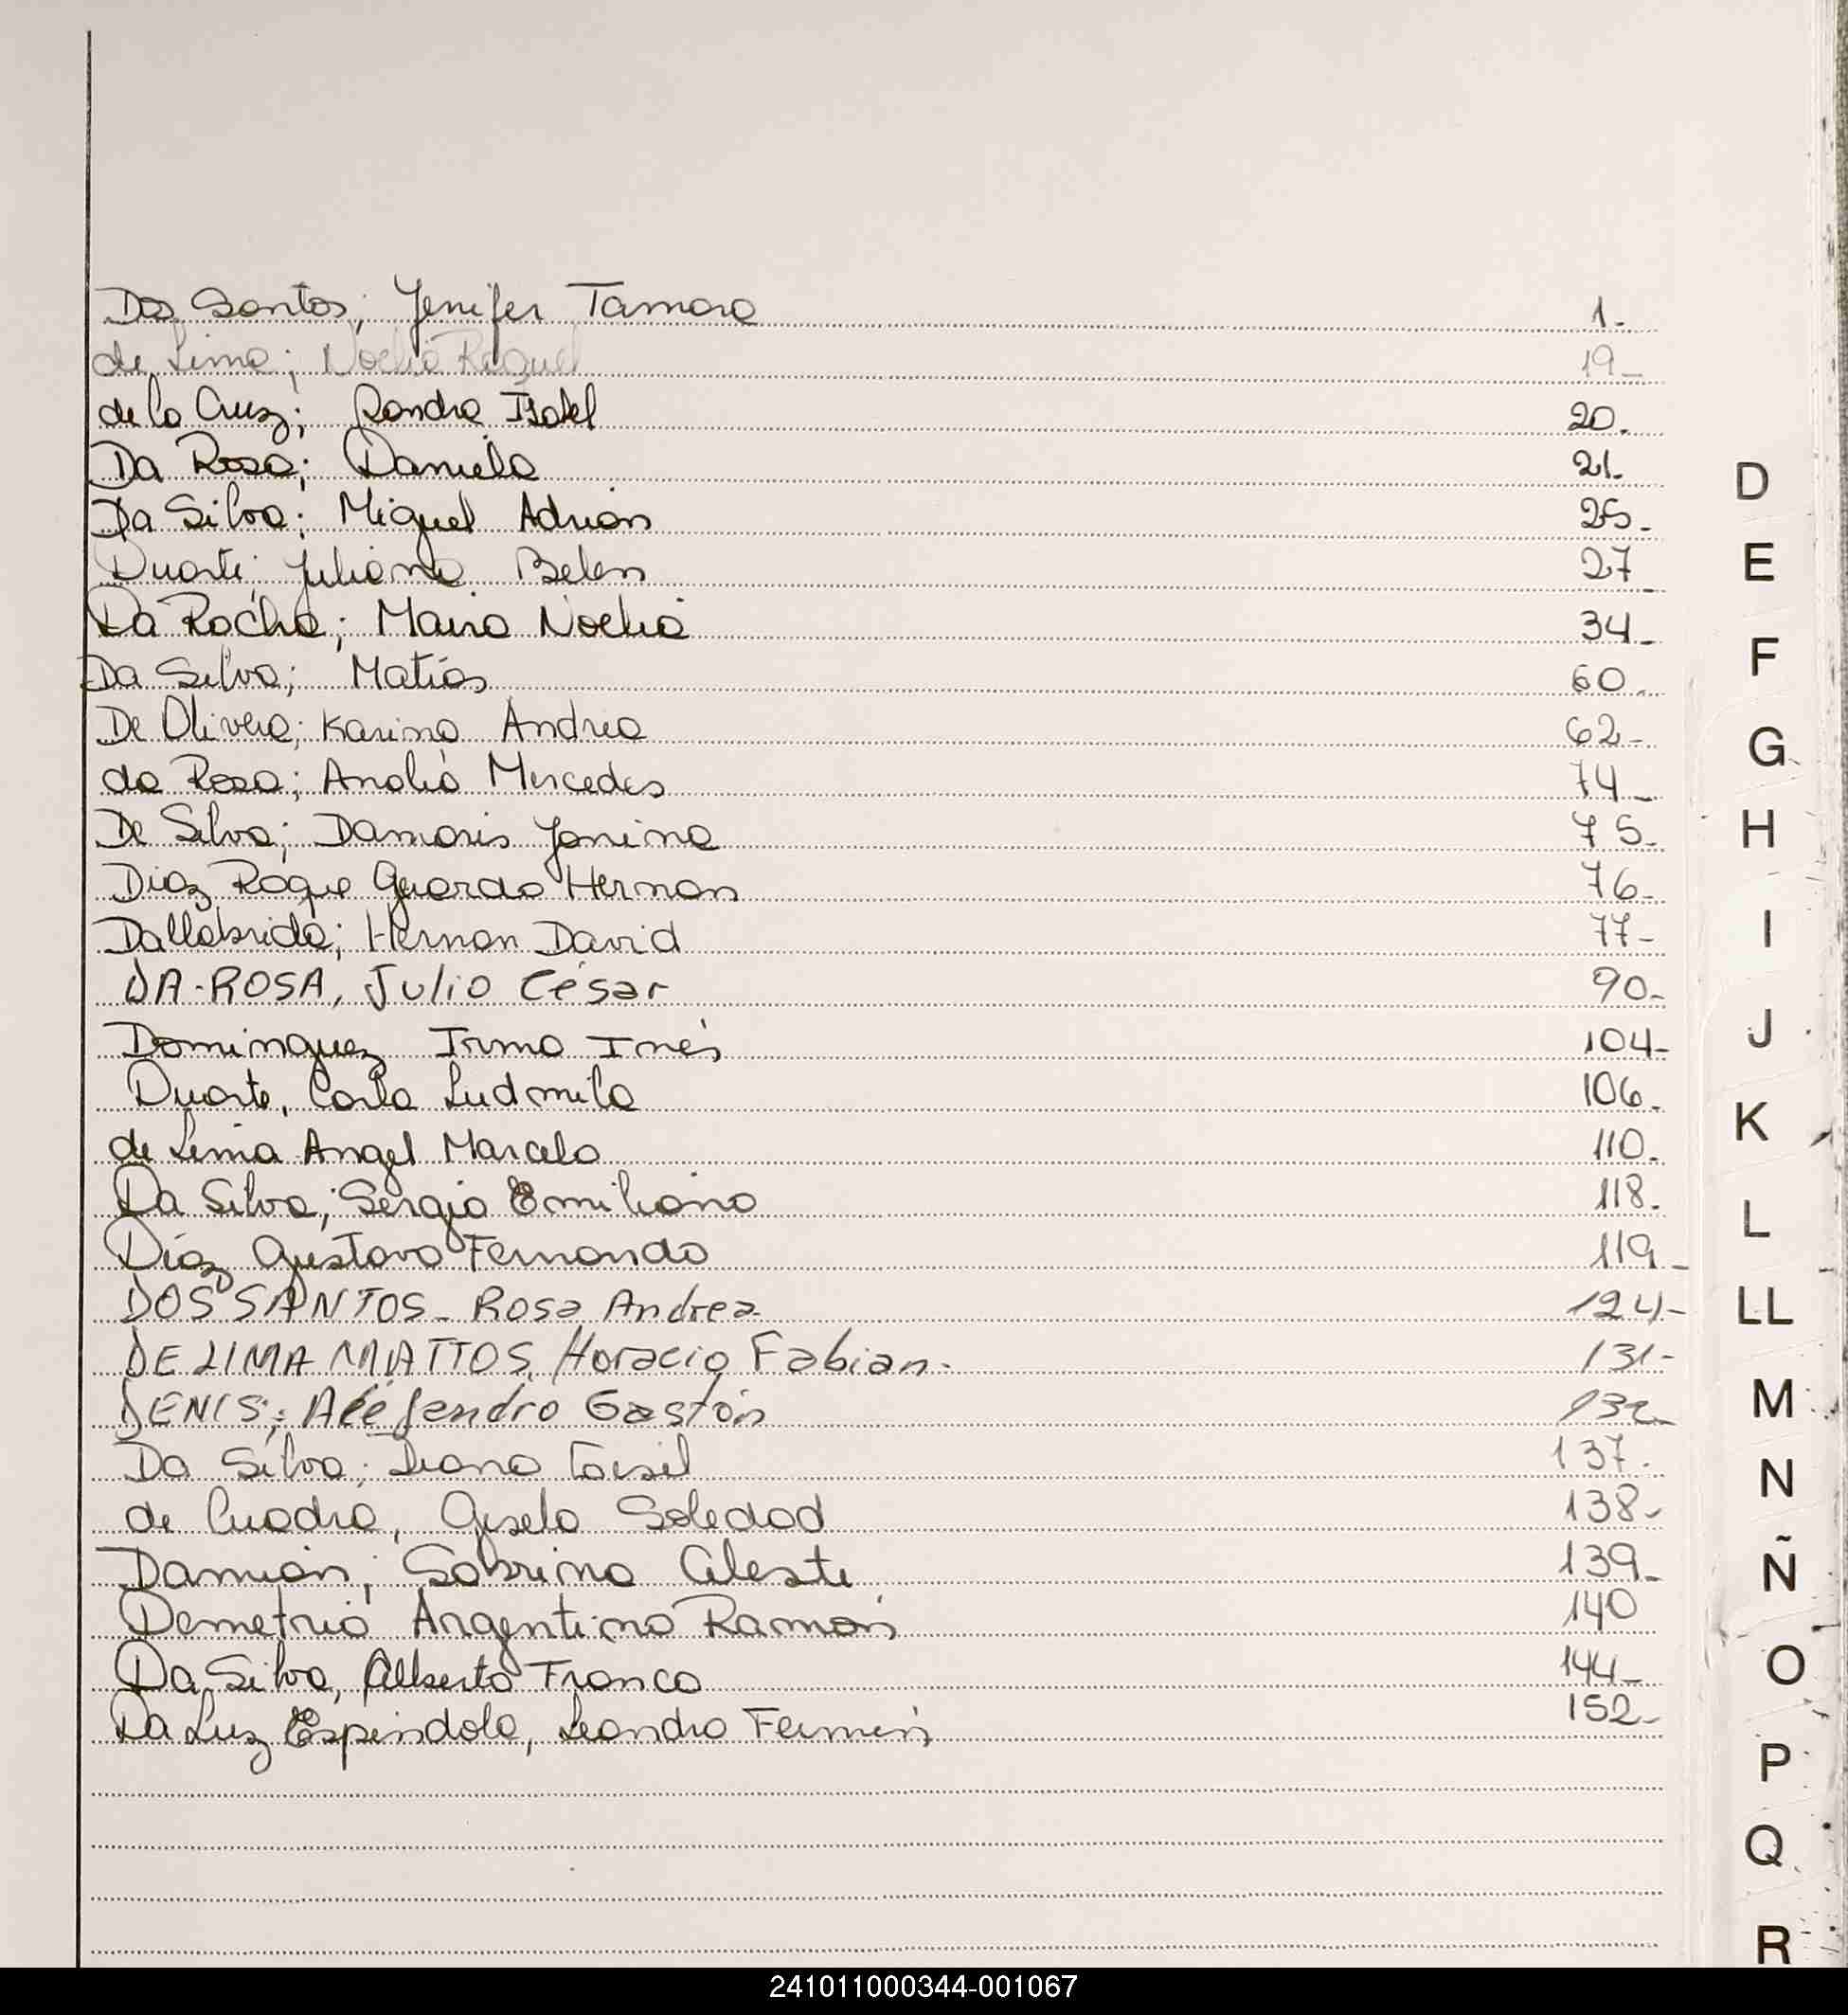 Dos Santos; Jenifer Tamara 1.-
de Lima; Noelia Raquel 19-
de la Cruz; Sandra Isabel 20.
Da Rosa; Daniela 21.
Da Silva; Miguel Adrián 25-
Duarte; Juliana Belen 27-
Da Rocha; María Noelia 34-
Da Silva; Matías 60-
De Olivera; Karina Andrea 62-
da Rosa; Analía Mercedes 74-
De Silva; Damaris Janina 75-
Diaz Roque Gerardo Hernan 76-
Dallabrida; Hernan David 77-
DA-ROSA, Julio César 90-
Dominguez Irma Inés 104-
Duarte, Carla Ludmila 106-
de Lima Angel Marcelo 110-
Da Silva; Sergio Emiliano 118-
Díaz Gustavo Fernando 119-
DOS SANTOS- Rosa Andrea 124-
DE LIMA MATTOS, Horacio Fabian- 131-
DENIS; Alejandro Gastón 132-
Da Silva; Diana 137-
de Cuadra, Gisela Soledad 138-
Damián; Sabrina Celeste 139-
Demetrio Argentino Ramón 140
Da Silva, Alberto Franco 144-
Da Luz Espindola, Leandro Fermín 152-
D
E
F
G
H
I
J
K
L
LL
M
N
Ñ
O
P
Q
R
241011000344-001067